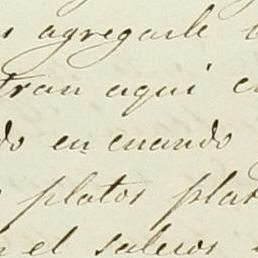 agregarle
tran aqui
do en cuando
platos plat
el